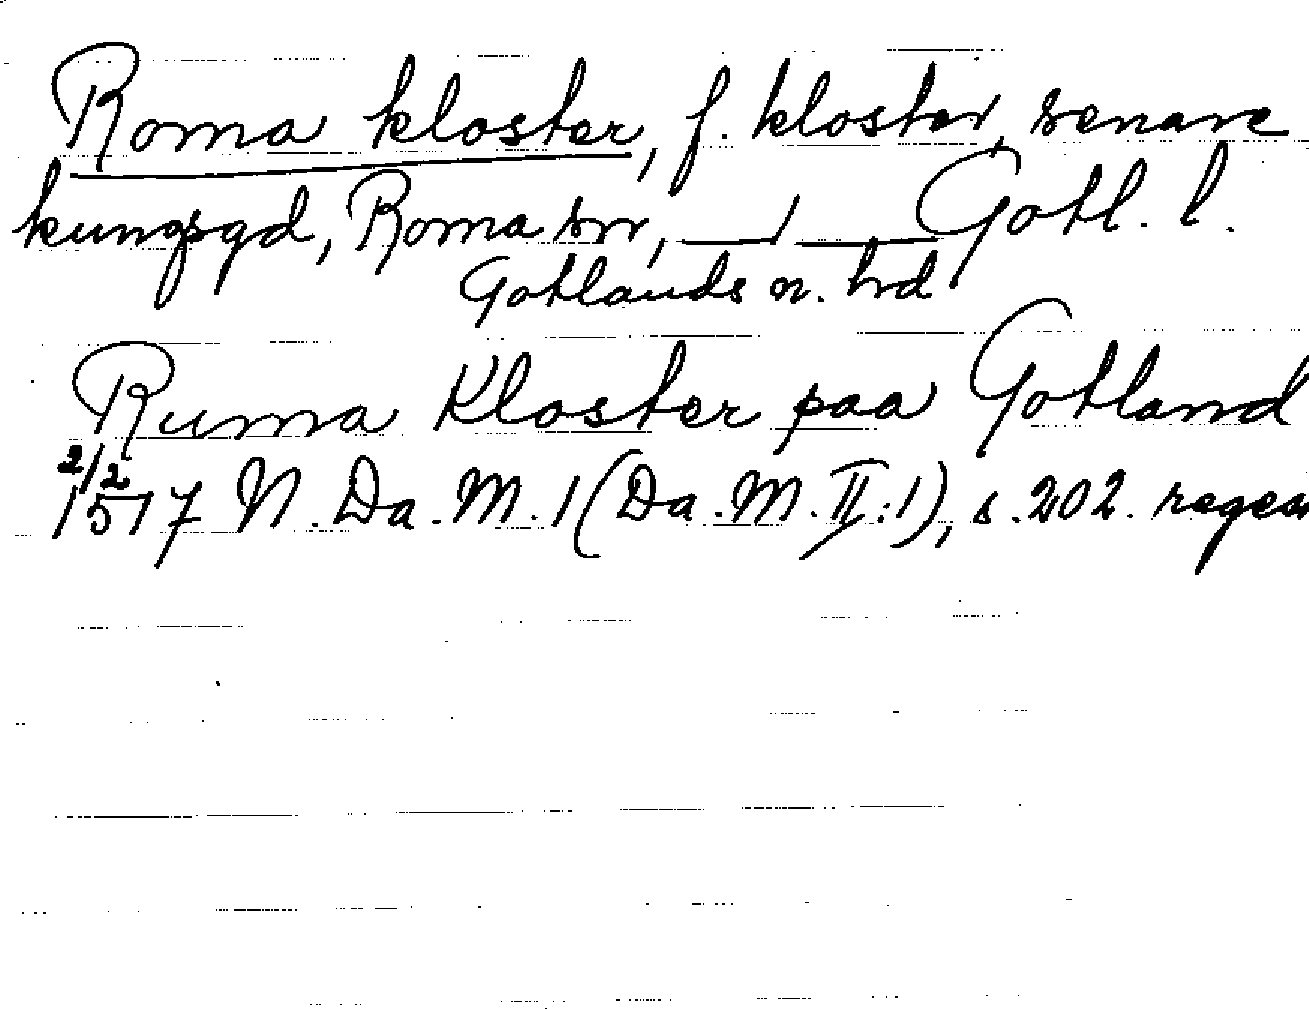 Roma kloster, f. kloster, senare
kungsgd, Roma sn, Gotl. l.
Gotlands n. hrd
Ruma Kloster paa Gotland
2/2
1517 N. Da. M. 1 (Da. M. II:1), s. 202. regest